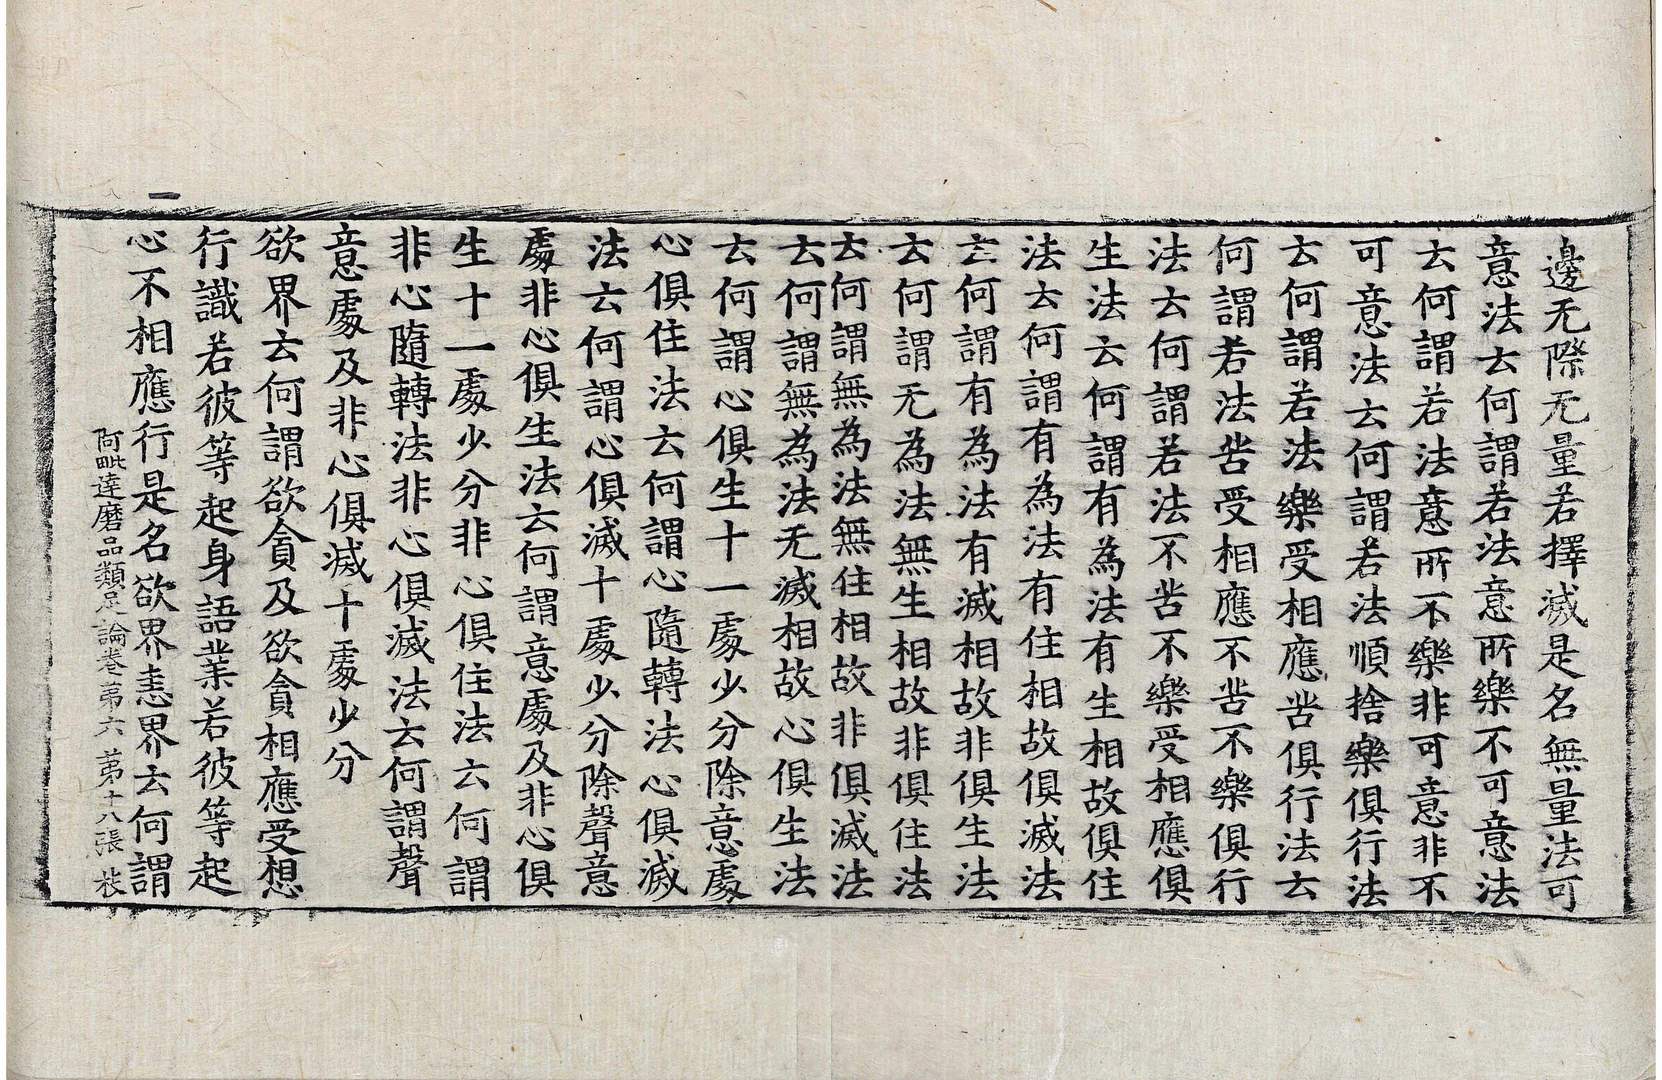 邊无際无量若擇滅是名無量法可
意法云何謂若法意所樂不可意法
云何謂若法意所不樂非可意非不
可意法云何謂若法順捨樂俱行法
云何謂若法樂受相應苦俱行法云
何謂若法苦受相應不苦不樂俱行
法云何謂若法不苦不樂受相應俱
生法云何謂有為法有生相故俱住
法云何謂有為法有住相故俱滅法
云何謂有為法有滅相故非俱生法
云何謂无為法無生相故非俱住法
云何謂無為法無住相故非俱滅法
云何謂無為法无滅相故心俱生法
云何謂心俱生十一處少分除意處
心俱住法云何謂心隨轉法心俱滅
法云何謂心俱滅十處少分除聲意
處非心俱生法云何謂意處及非心俱
生十一處少分非心俱住法云何謂
非心隨轉法非心俱滅法云何謂聲
意處及非心俱滅十處少分
欲界云何謂欲貪及欲貪相應受想
行識若彼等起身語業若彼等起
心不相應行是名欲界恚界云何謂
阿毗達磨品類足論卷第六 第十八張 枝